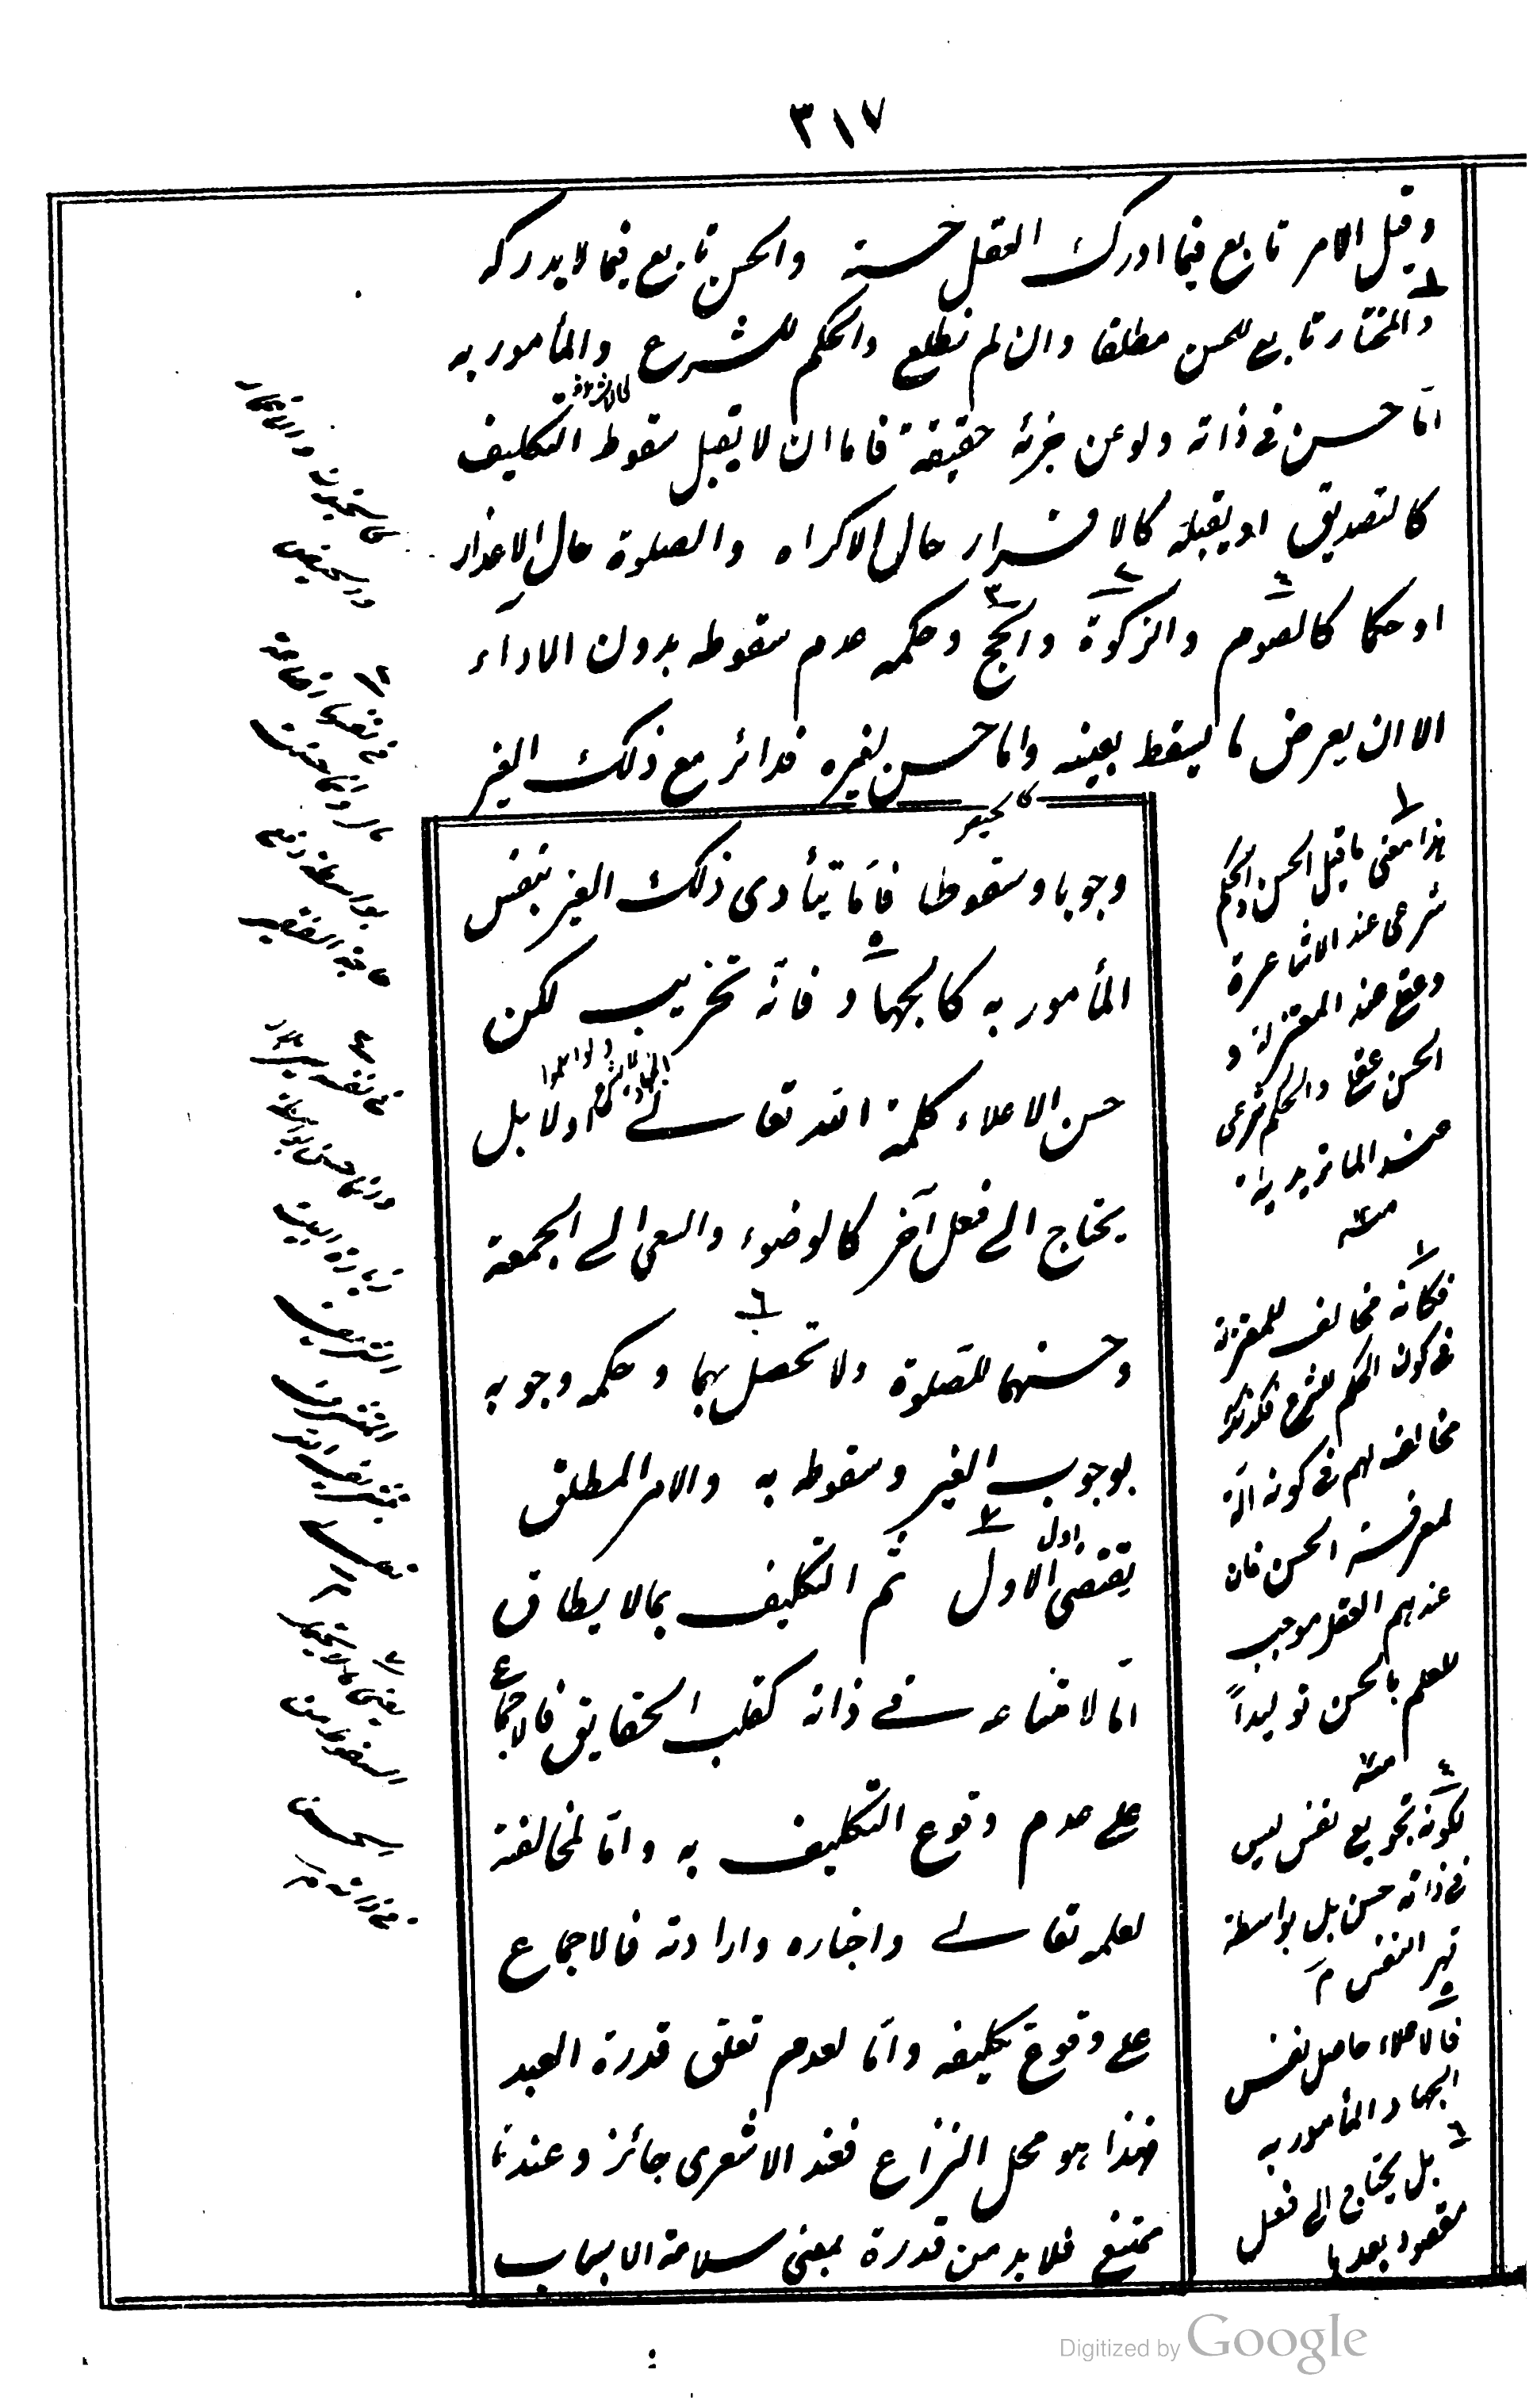 ٣١٧
وقيل الامر تابع فيما ادرك العقل حسنه والحسن تابع فيما لا يدركه
والمختار تابع للحسن مطلقا وان لم نطلع والحكم للشرع والمأمور به
امّا حسن فى ذاته ولو عن جزئه حقيقة فاما ان لا يقبل سقوط التكليف
كالتصديق او يقبله كالاقرار حال الاكراه والصلوة حال الاعذار
او حكما كالصوم والزكوة والحج وحكمه عدم سقوطه بدون الاداء
الا ان يعرض ما يسقط بعينه واما حسن لغيره فدائر مع ذلك الغير
وجوبا وسقوطا فامّا يتأدى ذلك الغير بنفس
المأمور به كالجهاد فانّه تخريب لكن
حسن الاعلاء كلمة الله تعالى اولا بل
يحتاج الى فعل آخر كالوضوء والسعى الى الجمعة
وحسنهما للصّلوة ولا تحصل بهما وحكمه وجوبه
بوجوب الغير وسقوطه به والامر المطلق
يقتضى الاول ثم التكليف بما لا يطاق
امّا لامتناعه فى ذاته كقلب الحقايق فالاجماع
على عدم وقوع التكليف به وامّا لمخالفة
لعلمه تعالى واخباره وارادته فالاجماع
على وقوع تكليفه وامّا لعدم تعلق قدرة العبد
فهذا هو محل النزاع فعند الاشعرى جائز وعندنا
ممتنع فلا بد من قدرة بمعنى سلامة الاسباب
١
هذا معنى ما قيل الحسن والحكم
شرعى عند الاشاعرة
وعقلى عند المعتزلة و
الحسن عقلى والحكم شرعى
عند الماتريدية
منه
فكانه مخالف للمعتزلة
فى كون الحكم للشرع
مخالف لهم فى كونه آلة
لمعرفة الحسن فان
عندهم العقل موجب
للعلم بالحسن توليداً
منه
لكونه تجويع نفس ليس
فى ذاته حسن بل بواسطة
قهر النفس م
فالاعلاء حاصل بنفس
الجهاد المأمور به
٦
بل يحتاج الى فعل
مقصود بعدها
بواسطة دفع
حاجة الفقير
زيارة البيت
الشريف
المشرف
بتشريف الله
تعالى
يعنى
الحسن
فى ذاته
Digitized by Google